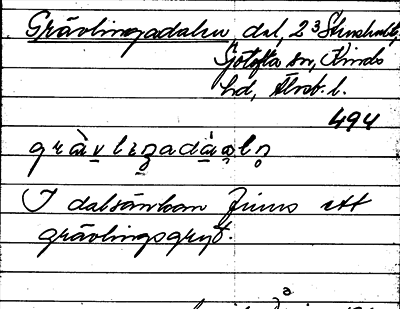 Grävlingadalen, dal, 2³ Stenshult,
Götofta sn, Kinds
hd, Älvsb. l.
494
I dalsänkan finns ett
grävlingsgryt.